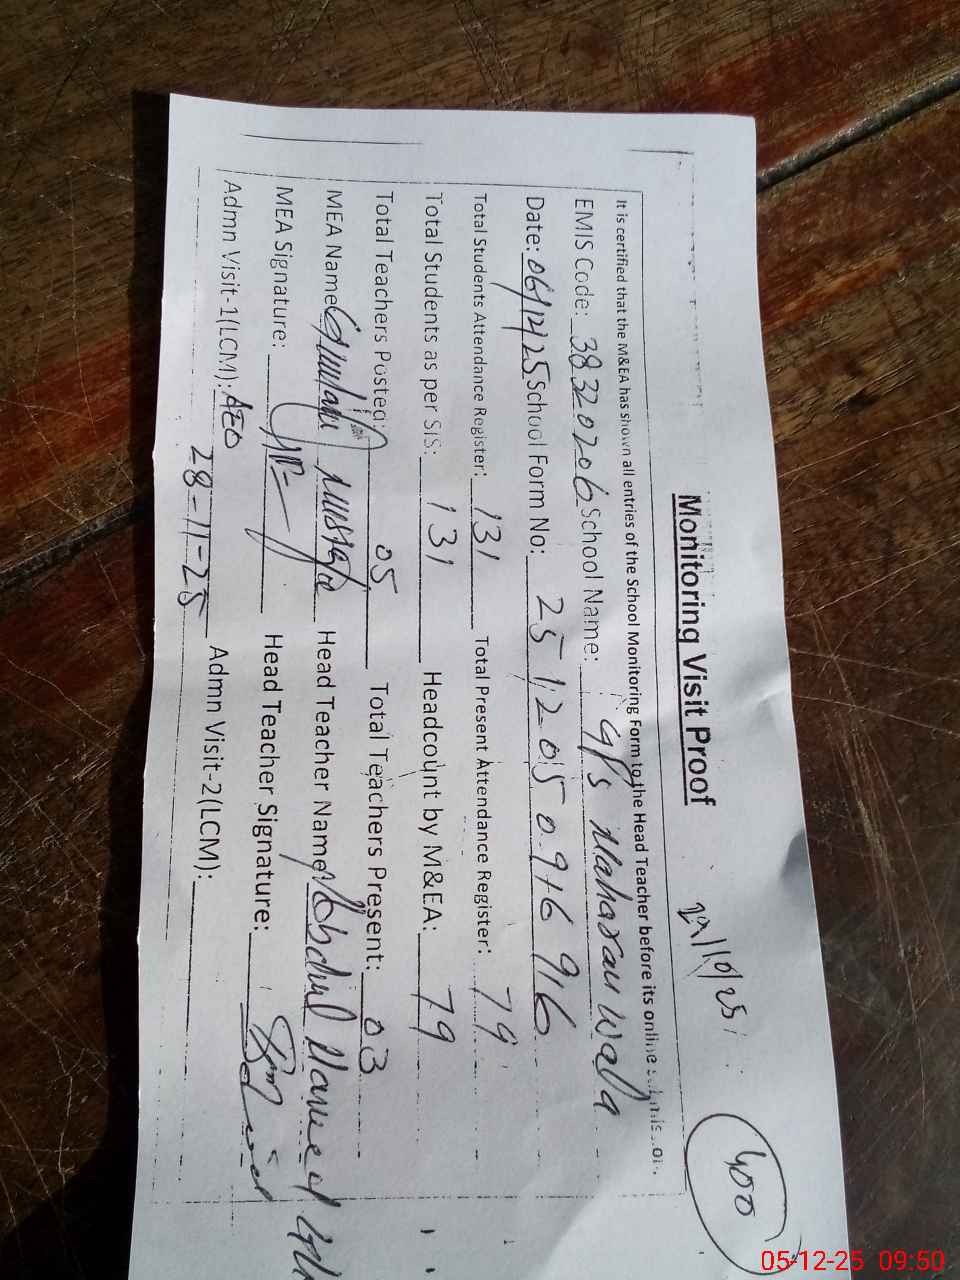 Monitoring Visit Proof
400
It is certified that the M&EA has shown all entries of the School Monitoring Form to the Head Teacher before its online
EMIS Code: 38320206 School Name: G/s Maharan wala
Date: 05/12/25 School Form No: 251205 916
Total Students Attendance Register: 131 Total Present Attendance Register: 79
Total Students as per SIS: 131 Headcount by M&EA: 79
Total Teachers Posted: 05 Total Teachers Present: 03
MEA Name Ghulam Mustafa Head Teacher Name Abdul Hameed
MEA Signature: Head Teacher Signature:
Admn Visit-1(LCM): AEO Admn Visit-2(LCM):
28-11-25
05-12-25 09:50